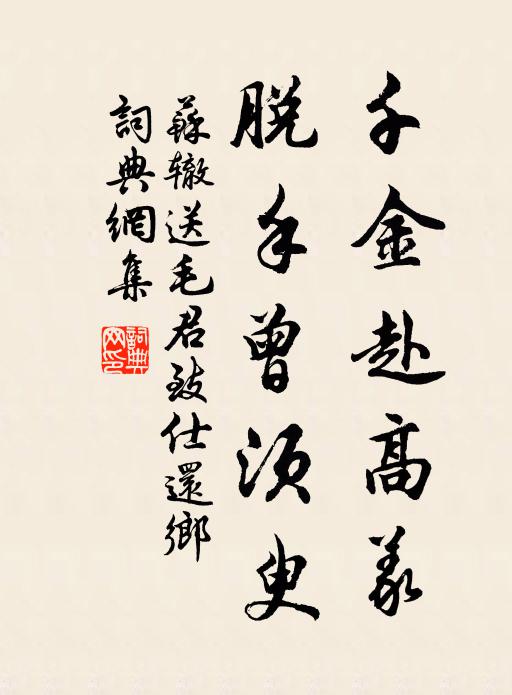 千金赴高義
脱手曾須臾
蘇轍送毛君致仕還鄉
詞典網集
詞典网印